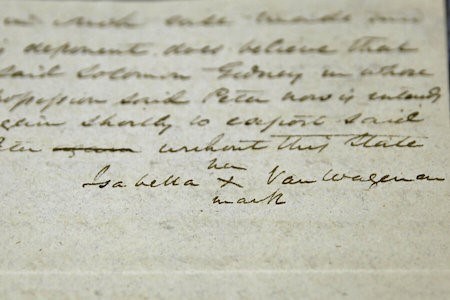 such sale made
deponent does believe that
said Solomon Gidney in whose
possession said Peter now is intends
again shortly to export said
Peter without this State
her
Isabella X Van Wagenan
mark